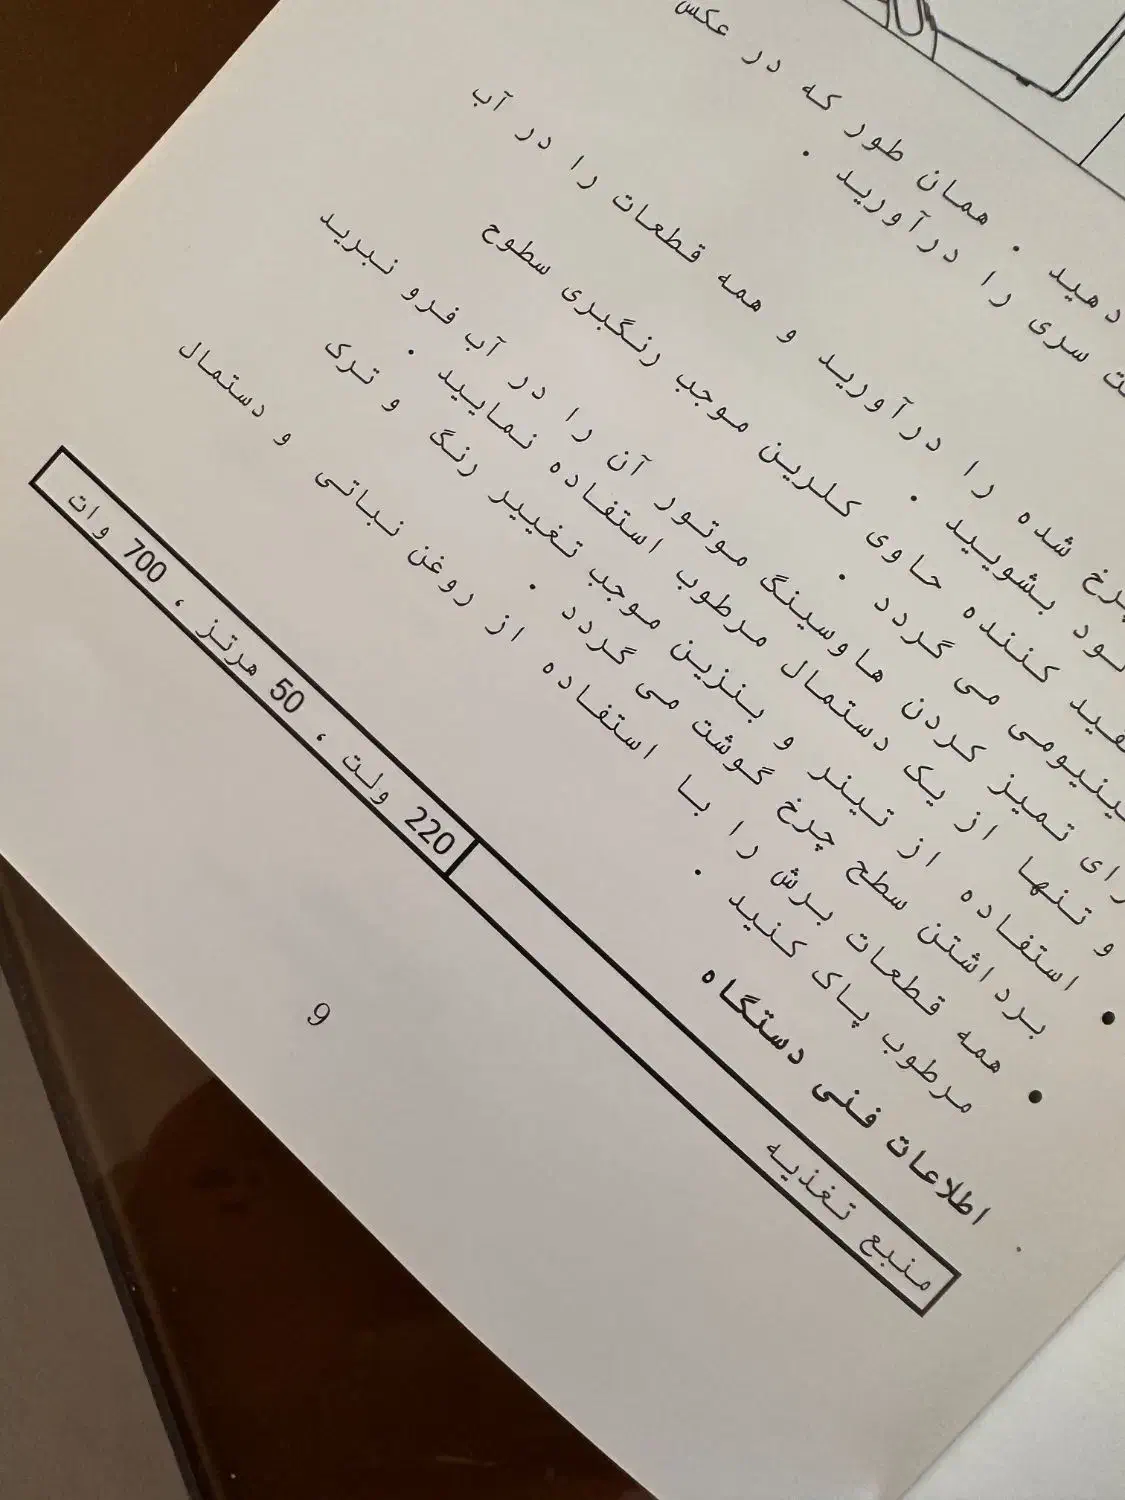 دهید . همان طور که در عکس
سری را درآورید .
چرخ شده را درآورید و همه قطعات را در آب
بشویید .
کننده حاوی کلرین موجب رنگبری سطوح
می گردد .
تمیز کردن هاوسینگ موتور آن را در آب فرو نبرید
و تنها از یک دستمال مرطوب استفاده نمایید .
استفاده از تینر و بنزین موجب تغییر رنگ و ترک
برداشتن سطح چرخ گوشت می گردد .
همه قطعات برش را با استفاده از روغن نباتی و دستمال
مرطوب پاک کنید .
اطلاعات فنی دستگاه
منبع تغذیه 220 ولت ، 50 هرتز ، 700 وات
9